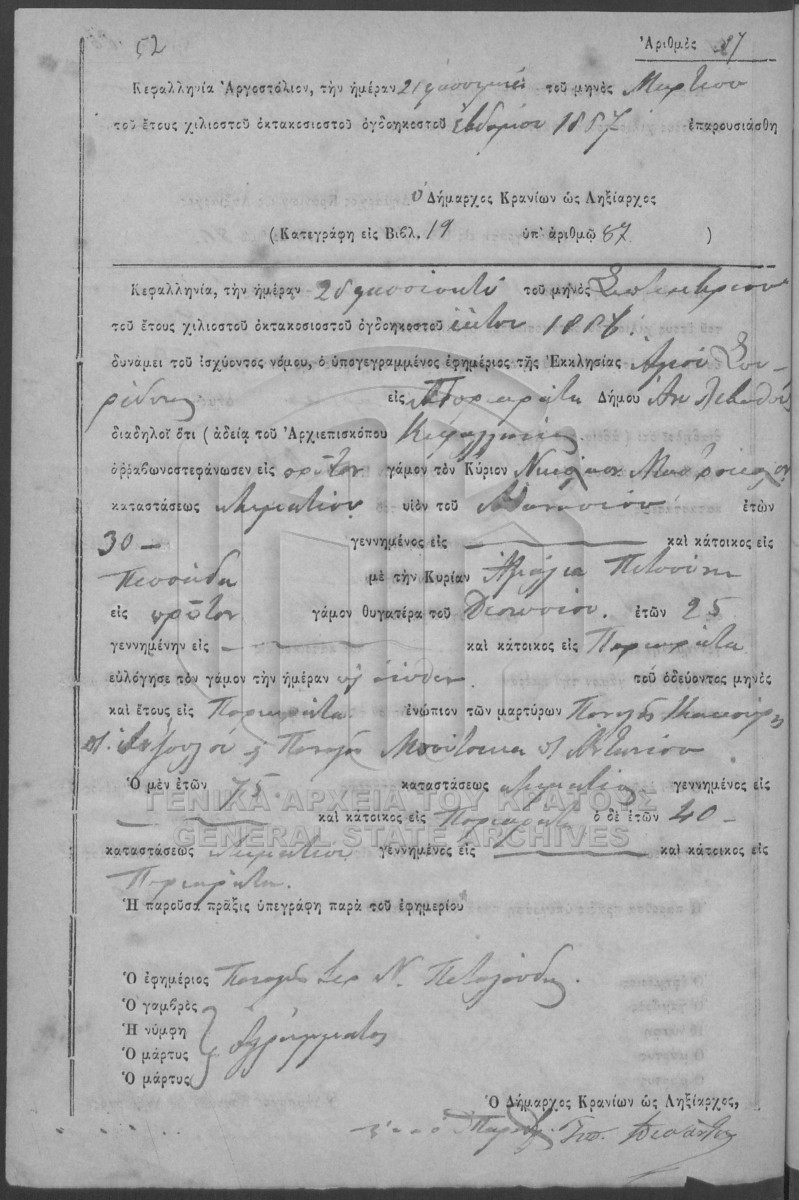 52
Ἀριθμὸς 87
Κεφαλληνία Ἀργοστόλιον, τὴν ἡμέραν 21 τοῦ μηνὸς Μαρτίου
τοῦ ἔτους χιλιοστοῦ ὀκτακοσιοστοῦ ὀγδοηκοστοῦ ἑβδόμου 1887 ἐπαρουσιάσθη
ὁ Δήμαρχος Κρανίων ὡς Ληξίαρχος
(Κατεγράφη εἰς Βιβλ. 19 ὑπ' ἀριθμῷ 87 )
Κεφαλληνία, τὴν ἡμέραν τοῦ μηνὸς Σεπτεμβρίου
τοῦ ἔτους χιλιοστοῦ ὀκτακοσιοστοῦ ὀγδοηκοστοῦ ἕκτου 1886.
δυνάμει τοῦ ἰσχύοντος νόμου, ὁ ὑπογεγραμμένος ἐφημέριος τῆς Ἐκκλησίας Ἁγίου Σπυ-
ρίδωνος εἰς Πορκαράτα Δήμου
διαδηλοῖ ὅτι (ἀδείᾳ τοῦ Ἀρχιεπισκόπου Κεφαλληνίας
ἀρραβωνοστεφάνωσεν εἰς πρῶτον γάμον τὸν Κύριον Νικόλαον
καταστάσεως κτηματίου υἱὸν τοῦ Ἀθανασίου ἐτῶν
30 — γεννημένος εἰς — καὶ κάτοικος εἰς
Πεσσάδα μὲ τὴν Κυρίαν
εἰς πρῶτον γάμον θυγατέρα τοῦ Διονυσίου. ἐτῶν 25
γεννημένην εἰς — καὶ κάτοικος εἰς Πορκαράτα
εὐλόγησε τὸν γάμον τὴν ἡμέραν τοῦ ὁδεύοντος μηνὸς
καὶ ἔτους εἰς Πορκαράτα. ἐνώπιον τῶν μαρτύρων Παναγῆς
Παναγῆς Ἀντωνίου
Ὁ μὲν ἐτῶν 75. καταστάσεως κτηματίας γεννημένος εἰς
— καὶ κάτοικος εἰς Πορκαράτα ὁ δὲ ἐτῶν 40 —
ΓΕΝΙΚΑ ΑΡΧΕΙΑ ΤΟΥ ΚΡΑΤΟΥΣ
GENERAL STATE ARCHIVES
καταστάσεως κτηματίου γεννημένος εἰς — καὶ κάτοικος εἰς
Πορκαράτα.
Ἡ παροῦσα πρᾶξις ὑπεγράφη παρὰ τοῦ ἐφημερίου
Ὁ ἐφημέριος Παναγῆς Ν.
Ὁ γαμβρὸς
Ἡ νύμφη
Ὁ μάρτυς Ἀγράμματος
Ὁ μάρτυς
Ὁ Δήμαρχος Κρανίων ὡς Ληξίαρχος,